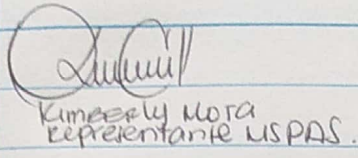 Kimberly Mota
Representante MSPAS.